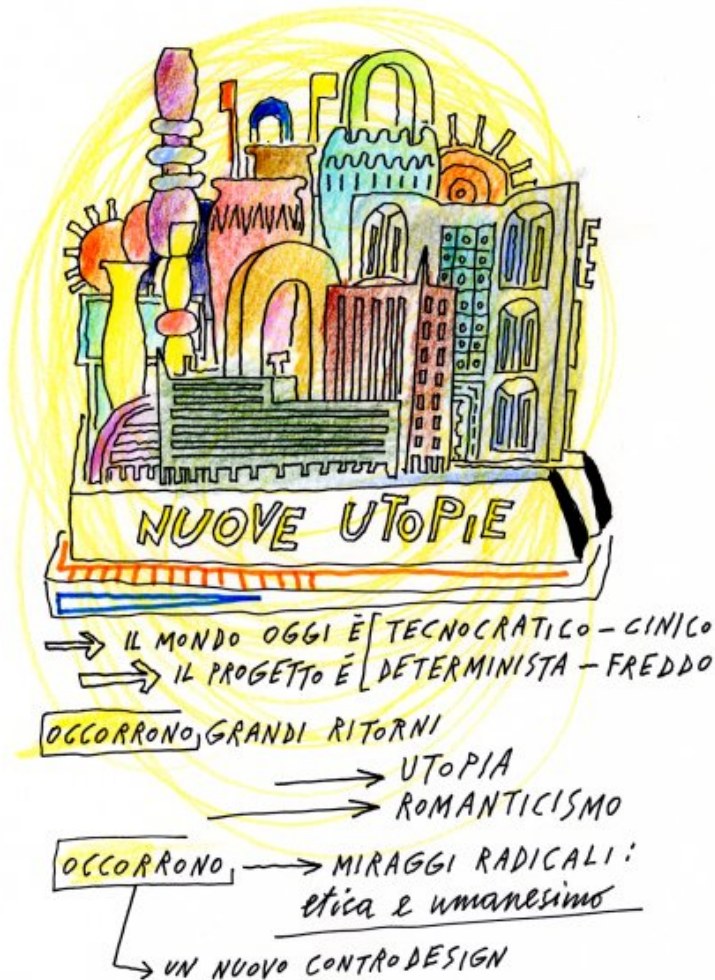 NUOVE UTOPIE
IL MONDO OGGI È [TECNOCRATICO - CINICO
IL PROGETTO É [DETERMINISTA - FREDDO
OCCORRONO, GRANDI RITORNI
UTOPIA
ROMANTICISMO
OCCORRONO, MIRAGGI RADICALI:
etica e umanesimo
UN NUOVO CONTRODESIGN